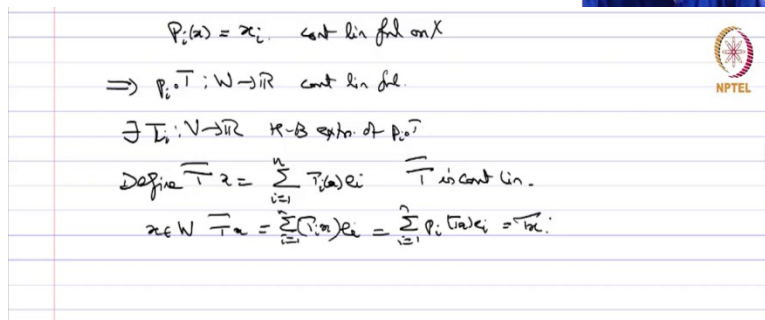 P_i(x) = x_i. cont lin fnl on X
⇒ P_i∘T : W→ℝ cont lin fnl.
NPTEL
∃ T_i : V→ℝ H-B extn. of P_i∘T
Define T̅ x = ∑_{i=1}^{n} T_i(x)e_i T̅ is cont lin.
x∈W T̅x = ∑_{i=1}^{n} (T_i x)e_i = ∑_{i=1}^{n} P_i(Tx)e_i = Tx.